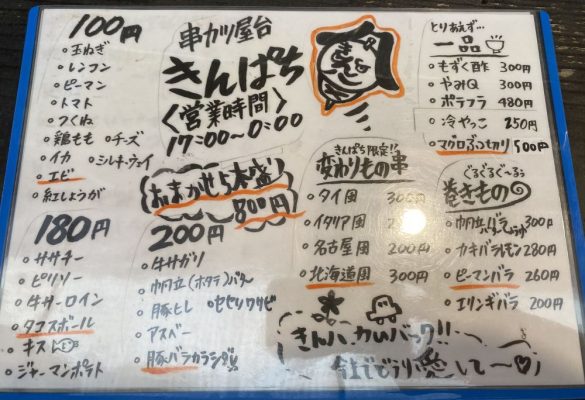 100円
○玉ねぎ
○レンコン
○ピーマン
○トマト
○つくね
○鶏もも ○チーズ
○イカ ○シルキーウェイ
○エビ
○紅しょうが
串カツ屋台
きんぱち
〈営業時間〉
17:00〜0:00
おまかせ5本盛
800円
とりあえず…
一品
○もずく酢 300円
○やみQ 300円
○ポテフラ 480円
○冷やっこ 250円
○マグロぶつ切り 500円
180円
○ササチー
○ピリソー
○牛サーロイン
○タコスボール
○キス
○ジャーマンポテト
200円
○牛サガリ
○帆立(ホタテ)バター
○豚ヒレ ○セセリワサビ
○アスベー
○豚バラカラシダレ!!
きんぱち限定!!
変わりもの串
○タイ風 300円
○イタリア風
○名古屋風 200円
○北海道風 300円
ぐるぐるぐ〜るっ
巻きもの
○帆立バラ 300円
○カキバラレモン 280円
○ピーマンバラ 260円
○エリンギバラ 200円
きんパ、カムバック!!
今までどうり愛して〜♡